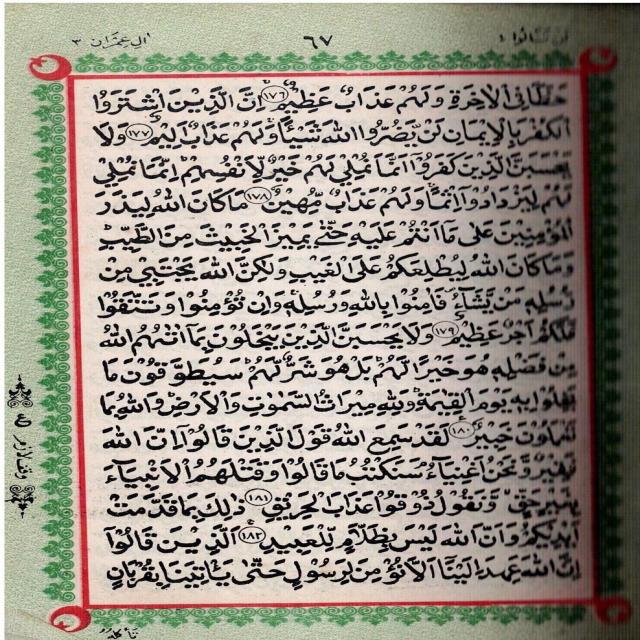 لن تنالوا ٤
٦٧
ال عمران ٣
حظا فى الاخرة ولهم عذاب عظيم ١٧٦ ان الذين اشتروا
الكفر بالايمان لن يضروا الله شيئا ولهم عذاب اليم ١٧٧ ولا
يحسبن الذين كفروا انما نملي لهم خير لانفسهم انما نملي
لهم ليزدادوا اثما ولهم عذاب مهين ١٧٨ ما كان الله ليذر
المؤمنين على ما انتم عليه حتى يميز الخبيث من الطيب
وما كان الله ليطلعكم على الغيب ولكن الله يجتبي من
رسله من يشاء فامنوا بالله ورسله وان تؤمنوا وتتقوا
فلكم اجر عظيم ١٧٩ ولا يحسبن الذين يبخلون بما اتهم الله
من فضله هو خيرا لهم بل هو شر لهم سيطوقون ما
بخلوا به يوم القيمة ولله ميراث السموت والارض والله بما
تعملون خبير ١٨٠ لقد سمع الله قول الذين قالوا ان الله
فقير ونحن اغنياء سنكتب ما قالوا وقتلهم الانبياء
بغير حق ونقول ذوقوا عذاب الحريق ١٨١ ذلك بما قدمت
ايديكم وان الله ليس بظلام للعبيد ١٨٢ الذين قالوا
ان الله عهد الينا الا نؤمن لرسول حتى ياتينا بقربان
تاكله
ع
وقف لازم